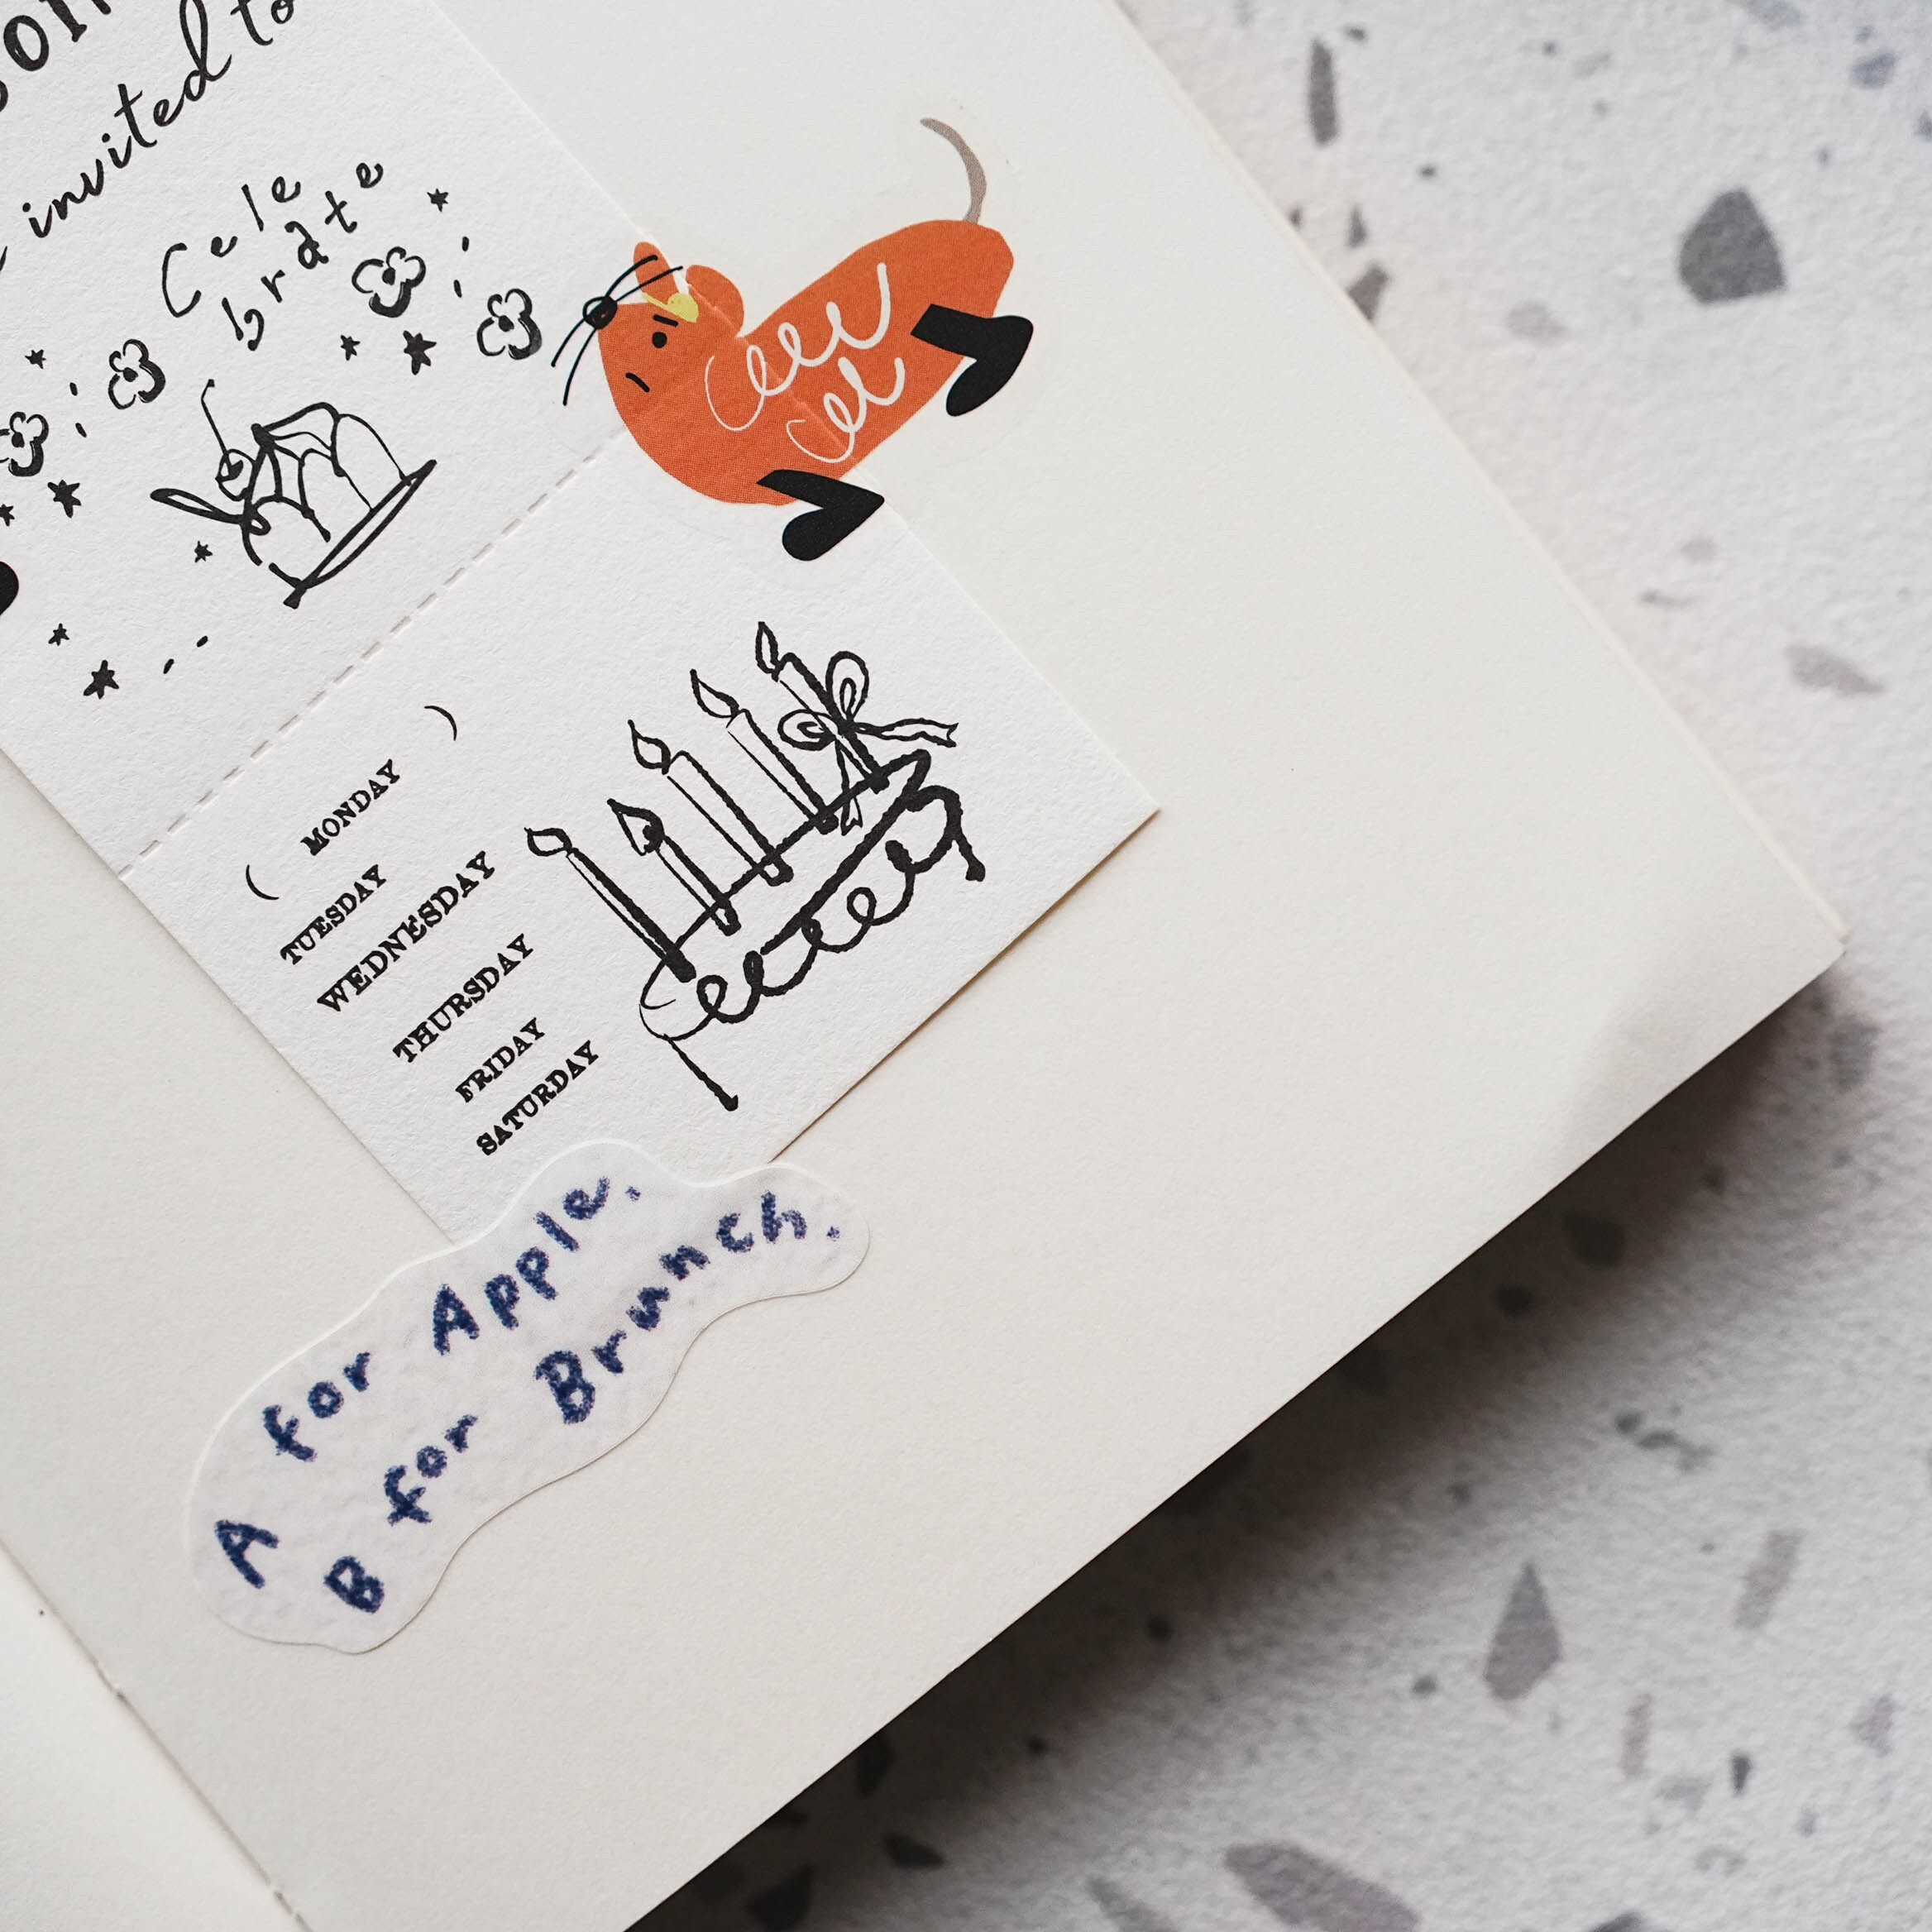 invited to
Cele
brate
( MONDAY )
TUESDAY
WEDNESDAY
THURSDAY
FRIDAY
SATURDAY
A for Apple.
B for Brunch.